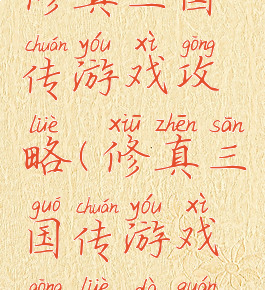 修真三国
chuán yóu xì gōng
传游戏攻
lüè xiū zhēn sān
略(修真三
guó chuán yóu xì
国传游戏
gōng lüè dà quán